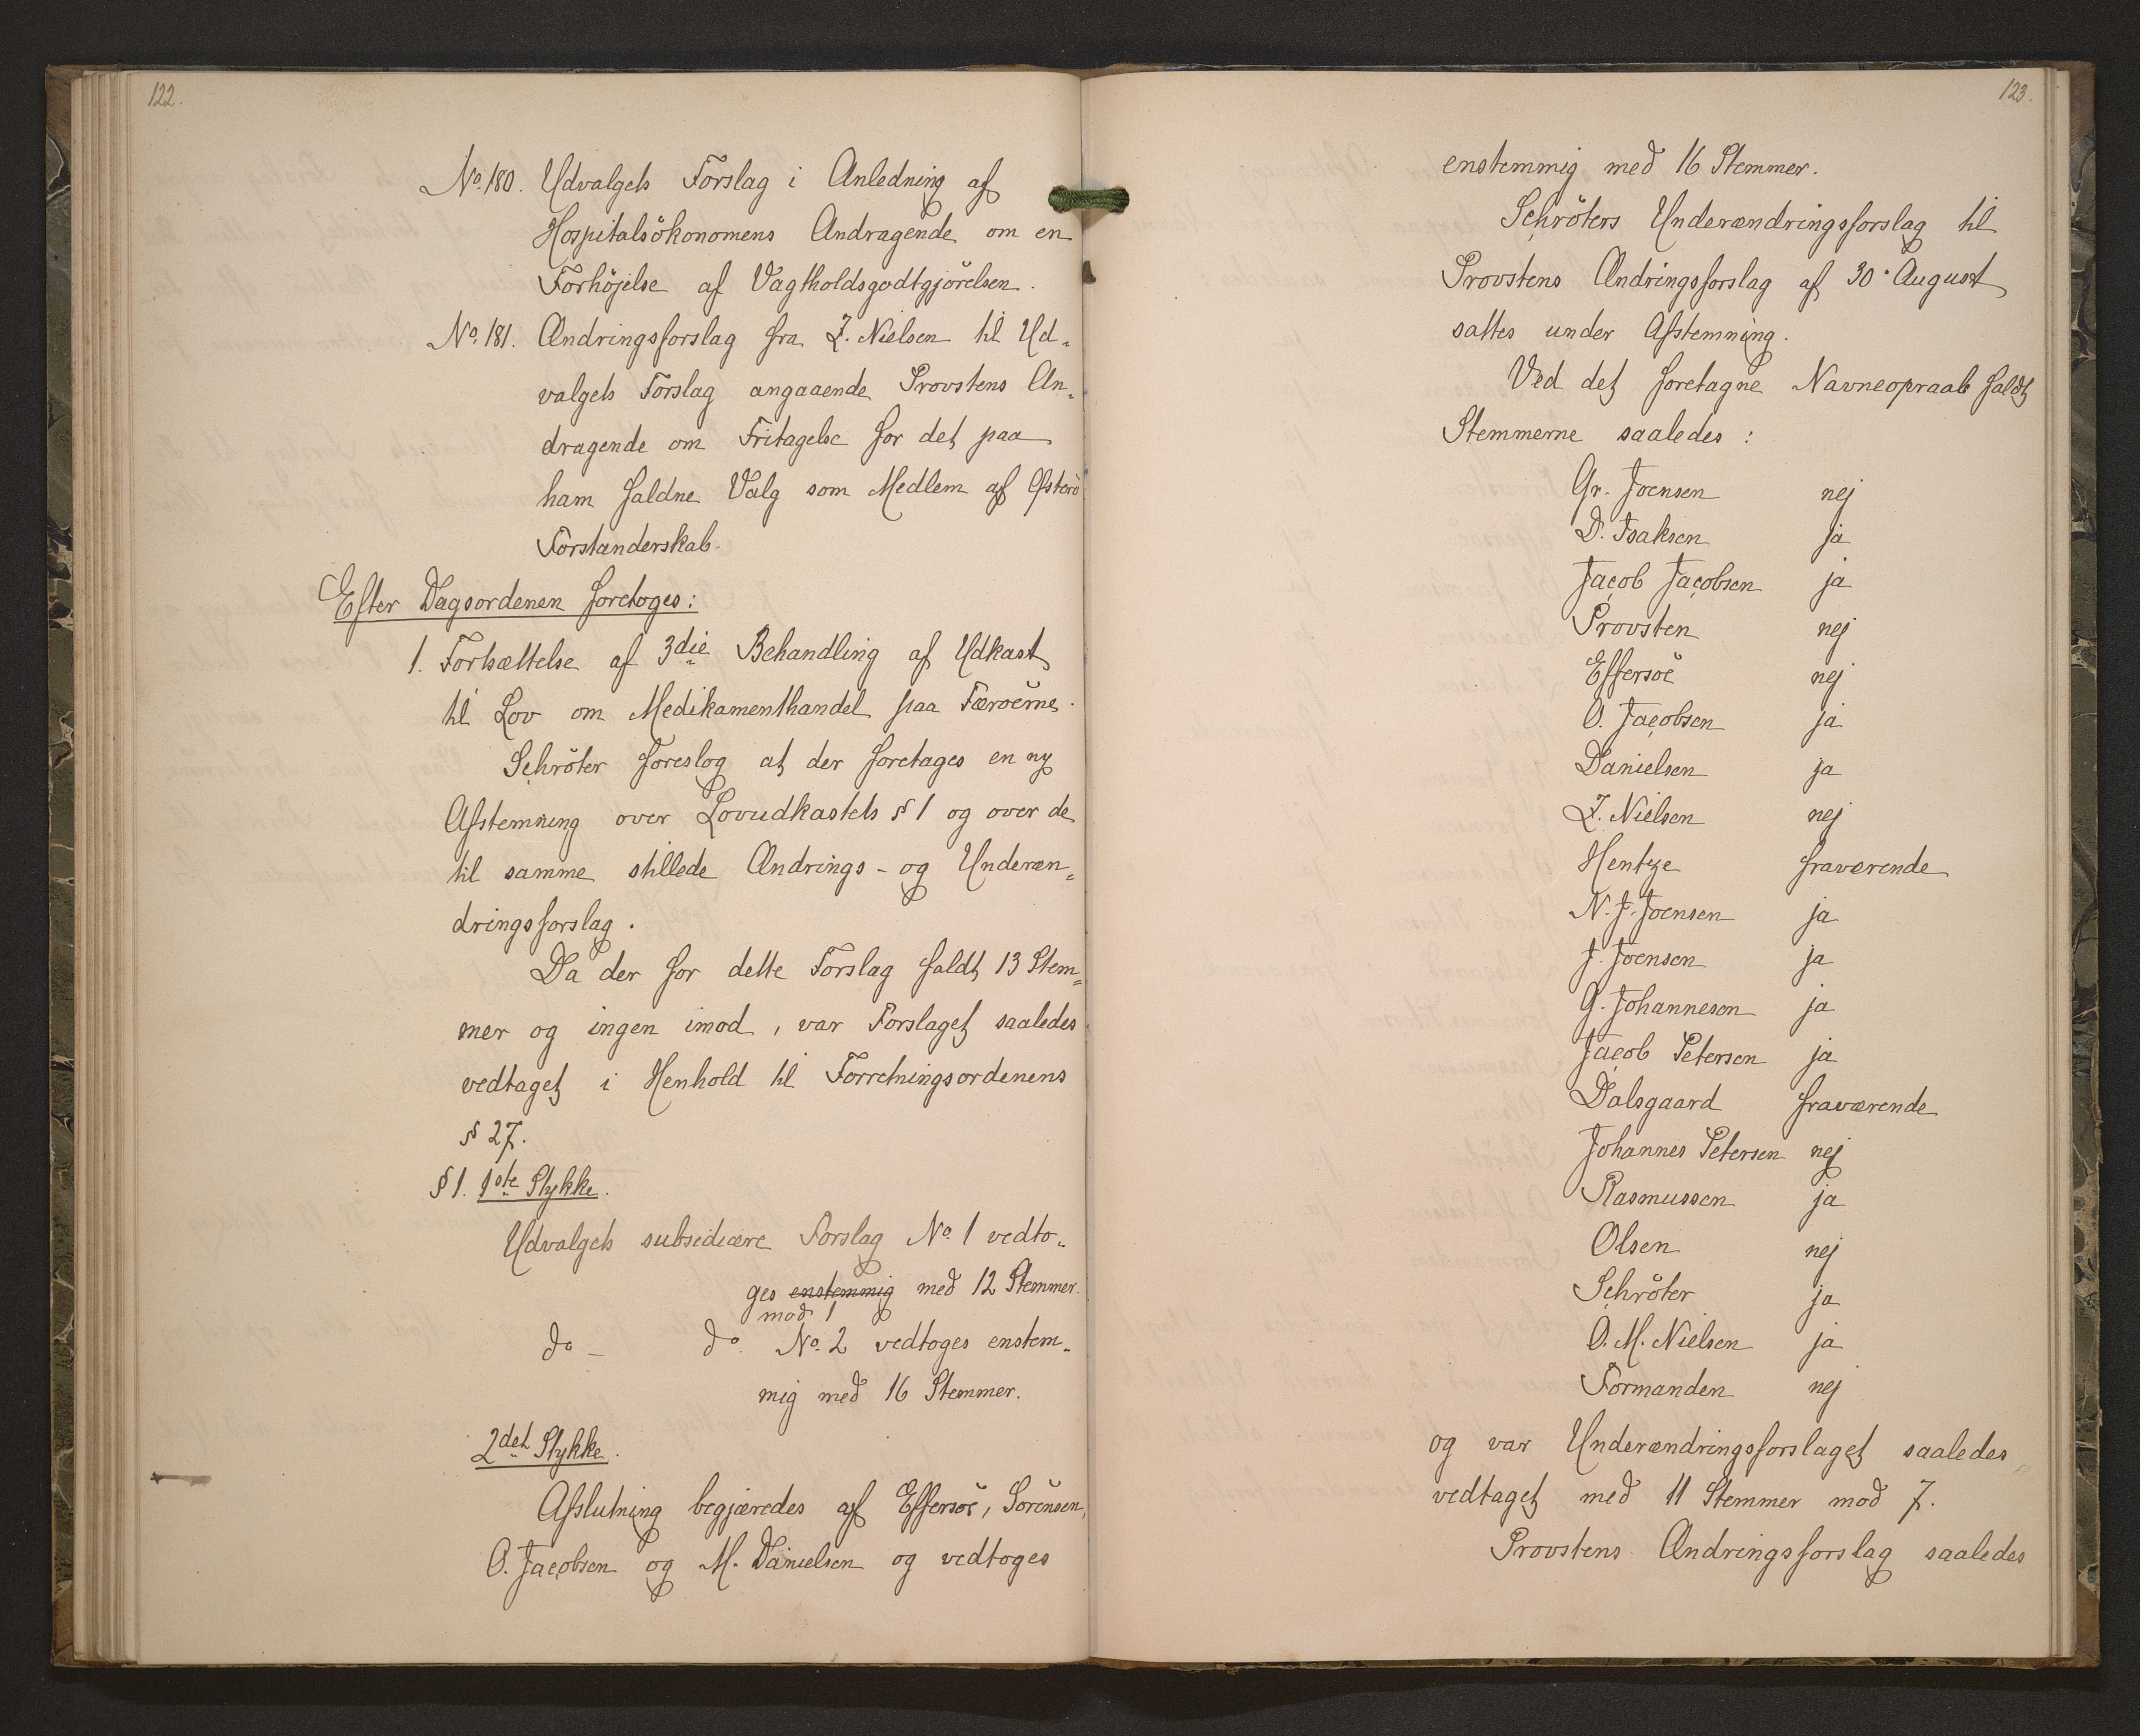 122.
No. 180. Udvalgets Forslag i Anledning af
Hospitalsökonomens Andragende om en
Forhöjelse af Vagtholdsgodtgjörelsen.
No. 181. Ændringsforslag fra Z. Nielsen til Ud-
valgets Forslag angaaende Provstens An-
dragende om Fritagelse for det paa
ham faldne Valg som Medlem af Österö
Forstanderskab.
Efter Dagsordenen foretoges:
1. Fortsættelse af 3die Behandling af Udkast
til Lov om Medikamenthandel paa Færöerne.
Schröter foreslog at der foretages en ny
Afstemning over Lovudkastets § 1 og over de
til samme stillede Ændrings- og Underæn-
dringsforslag.
Da der for dette Forslag faldt 13 Stem-
mer og ingen imod, var Forslaget saaledes
vedtaget i Henhold til Forretningsordenens
§ 27.
§ 1. 1ste Stykke.
Udvalgets subsidiære Forslag No. 1 vedto-
ges enstemmig med 12 Stemmer.
mod 1
do - do No. 2 vedtoges enstem-
mig med 16 Stemmer.
2det Stykke.
Afslutning begjæredes af Effersöe, Sörensen,
O. Jacobsen og M. Danielsen og vedtoges
123.
enstemmig med 16 Stemmer.
Schröters Underændringsforslag til
Provstens Ændringsforslag af 30. August
sattes under Afstemning.
Ved det foretagne Navneopraab faldt
Stemmerne saaledes:
Gr. Joensen nej
D. Isaksen ja
Jacob Jacobsen ja
Provsten nej
Effersöe nej
O. Jacobsen ja
Danielsen ja
Z. Nielsen nej
Hentze fraværende
N. J. Joensen ja
J. Joensen ja
G. Johannesen ja
Jacob Petersen ja
Dalsgaard fraværende
Johannes Petersen nej
Rasmussen ja
Olsen nej
Schröter ja
O. M. Nielsen ja
Formanden nej
og var Underændringsforslaget saaledes
vedtaget med 11 Stemmer mod 7.
Provstens Ændringsforslag saaledes